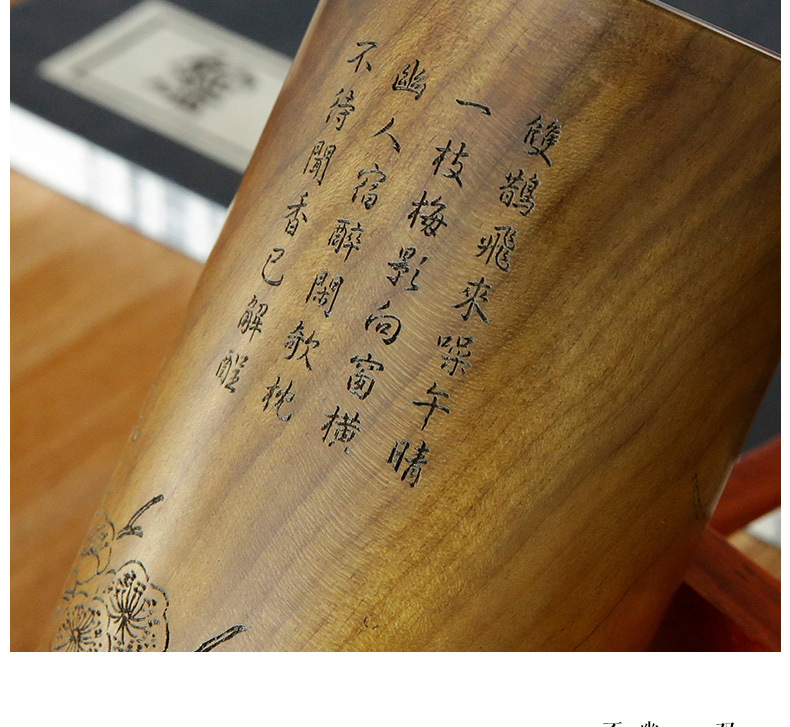 雙鵲飛來噪午晴
一枝梅影向窗橫
幽人宿醉閑欹枕
不待聞香已解醒